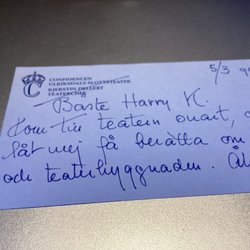 CONFIDENCEN
ULRIKSDALS SLOTTSTEATER
KJERSTIN DELLERT
TEATERCHEF
5/3
Bäste Harry K.
Kom till teatern snart,
låt mej få berätta om
och teaterbyggnaden.